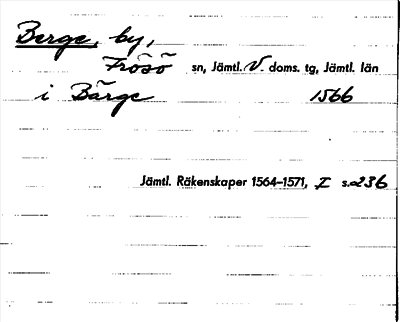 Berge, by,
Frösö sn, Jämtl. V doms. tg, Jämtl. län
i Bärge 1566
Jämtl. Räkenskaper 1564–1571, I s. 236